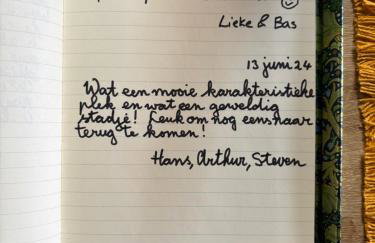 Lieke & Bas
13 juni 24
Wat een mooie karakteristieke
plek en wat een geweldig
stadje! Leuk om nog eens naar
terug te komen!
Hans, Arthur, Steven